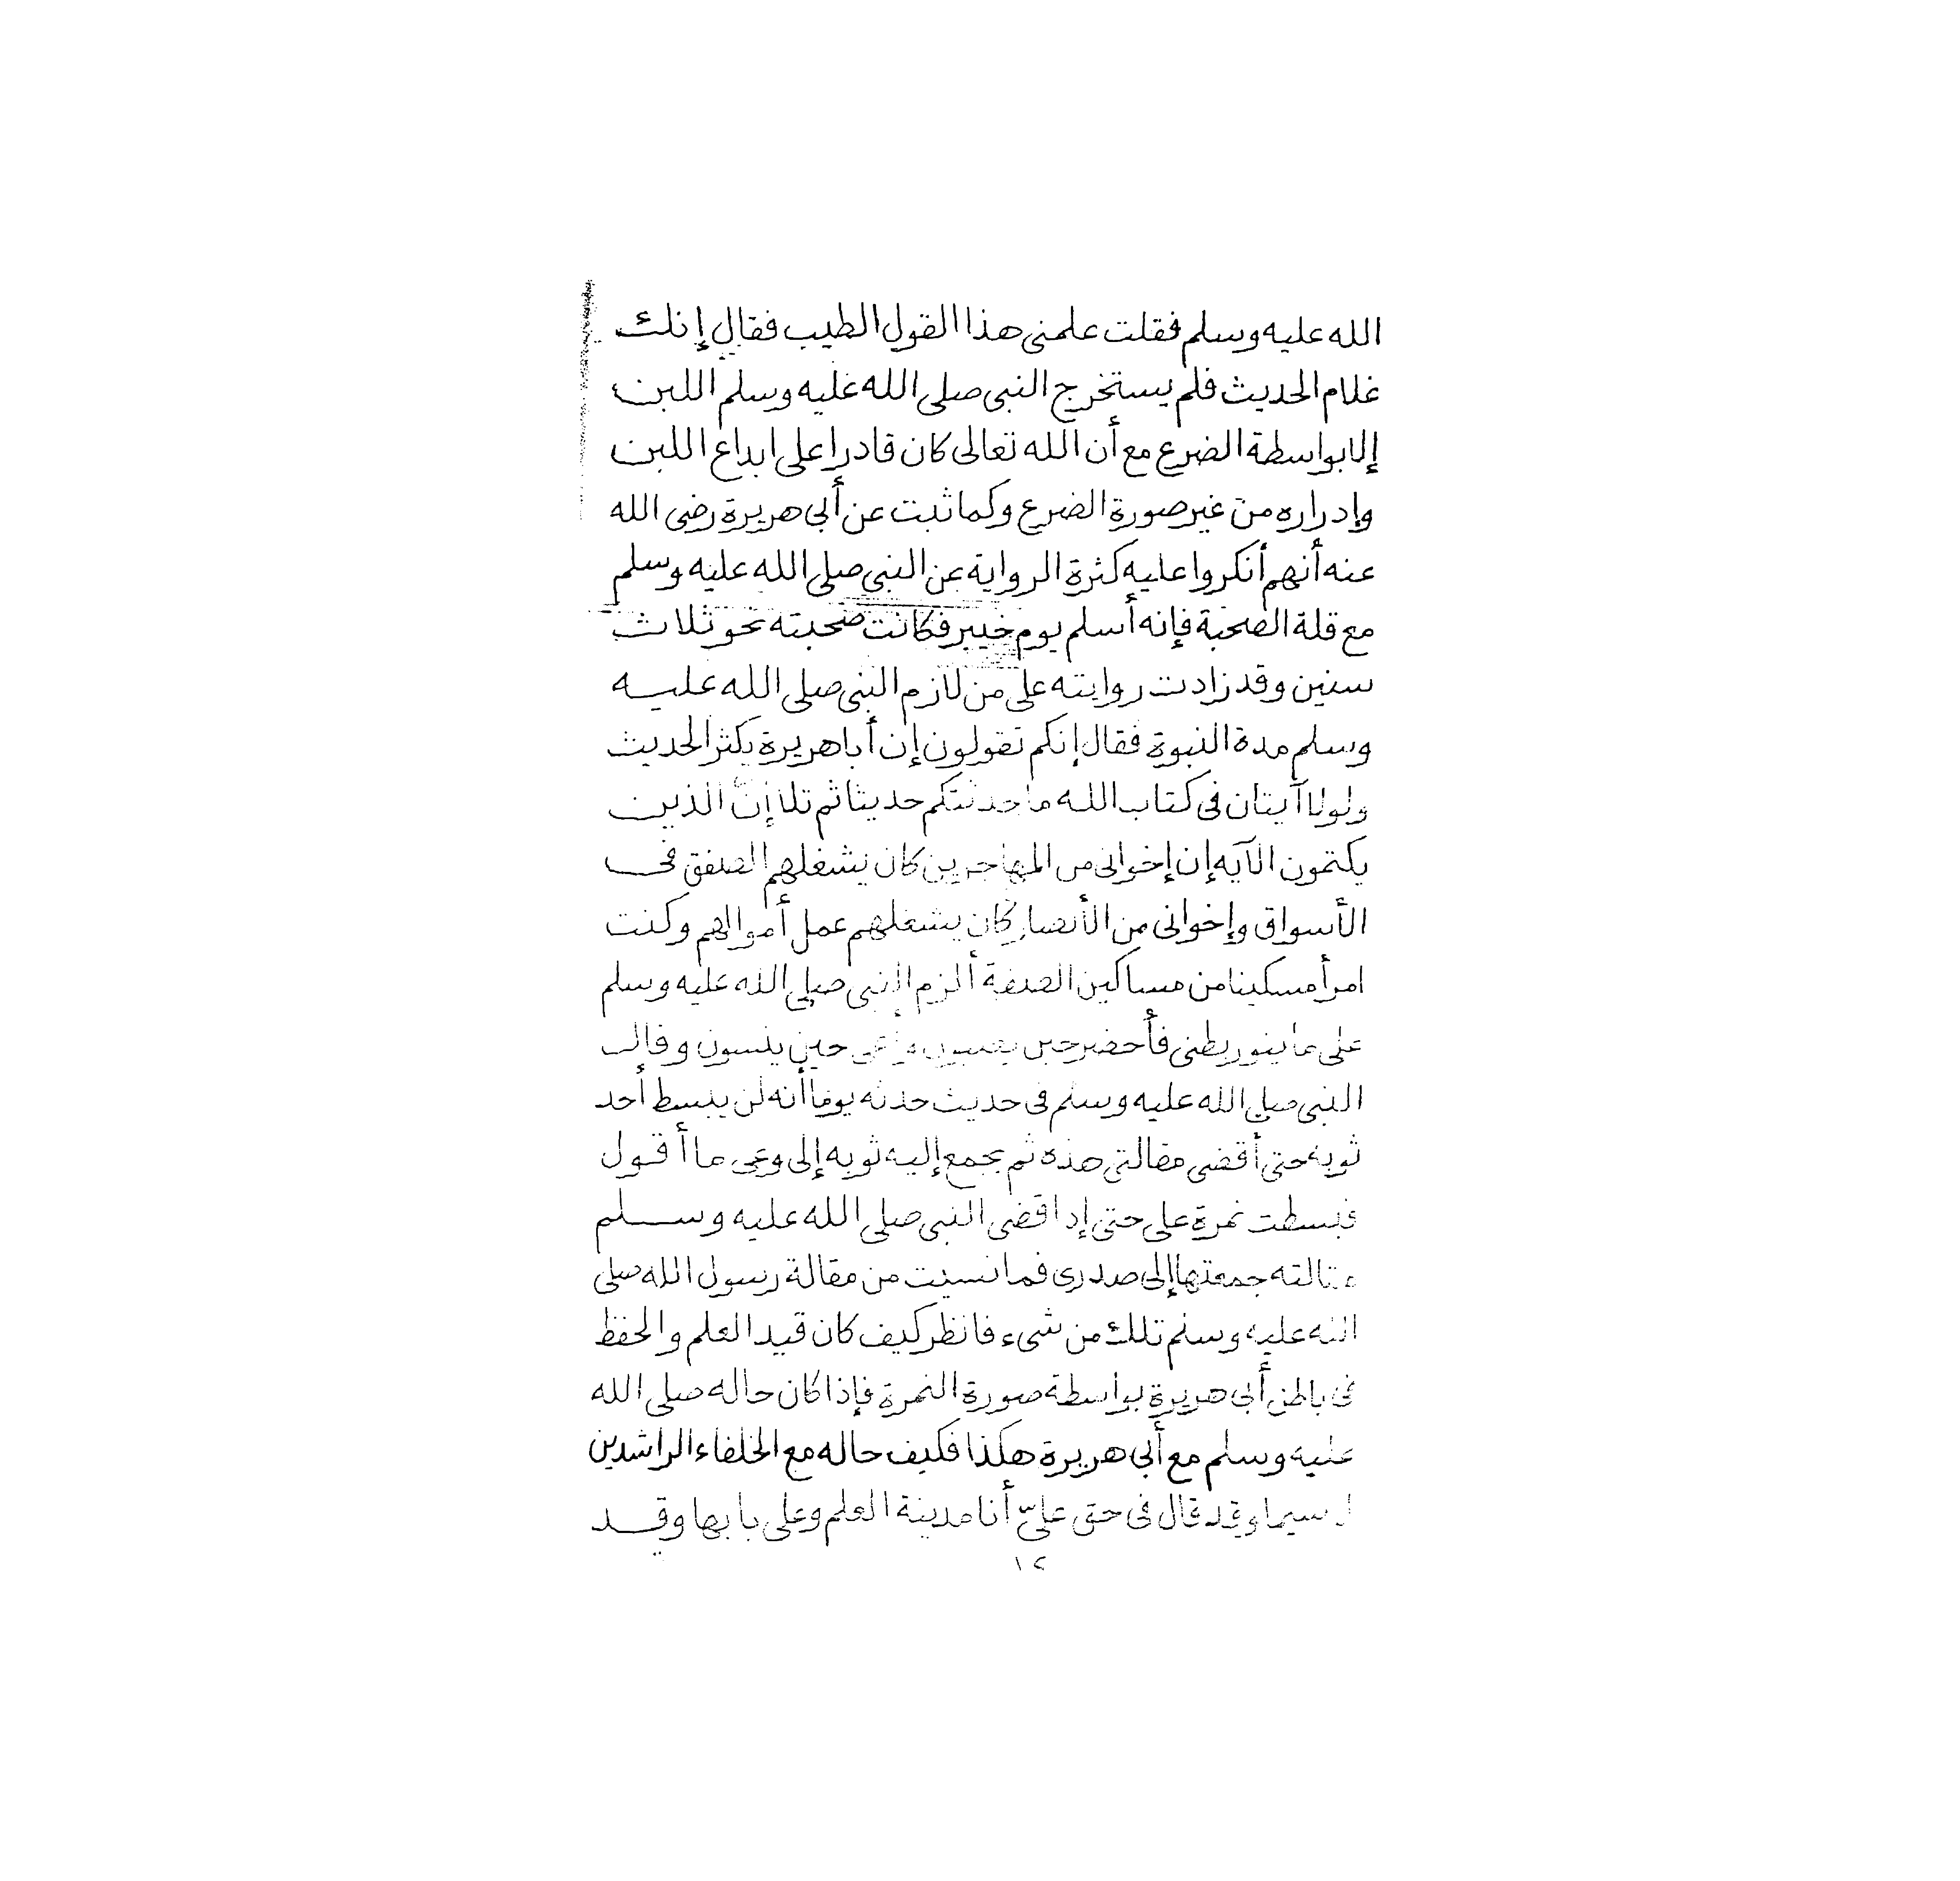 الله عليه وسلم فقلت علمنى هذا القول الطيب فقال إنك
غلام الحديث فلم يستخرج النبى صلى الله عليه وسلم اللبن
إلا بواسطة الضرع مع أن الله تعالى كان قادرا على ابداع اللبن
وإدراره من غير صورة الضرع وكما ثبت عن أبى هريرة رضى الله
عنه أنهم أنكروا عليه كثرة الرواية عن النبى صلى الله عليه وسلم
مع قلة الصحبة فإنه أسلم يوم خيبر فكانت صحبته نحو ثلاث
سنين وقد زادت روايته على من لازم النبى صلى الله عليه
وسلم مدة النبوة فقال إنكم تقولون إن أبا هريرة يكثر الحديث
ولولا آيتان فى كتاب الله ما حدثتكم حديثا ثم تلا إنّ الذين
يكتمون الآيه إن إخوانى من المهاجرين كان يشغلهم الصفق فى
الأسواق وإخوانى من الأنصار كان يشغلهم عمل أموالهم وكنت
امرأ مسكينا من مساكين الصفة ألزم النبى صلى الله عليه وسلم
على بطنى فأحضر حين يغيبون وأعى حين ينسون وقال
النبى صلى الله عليه وسلم فى حديث حدثه يوما أنه لن يبسط أحد
ثوبه حتى أقضى مقالتى هذه ثم يجمع إليه ثوبه إلى وعى ما أقول
فبسطت نمرة على حتى إذا قضى النبى صلى الله عليه وسلم
مقالته جمعتها إلى صدرى فما نسيت من مقالة رسول الله صلى
الله عليه وسلم تلك من شىء فانظر كيف كان قيد العلم والحفظ
فى باطن أبى هريرة بواسطة صورة النمرة فإذا كان حاله صلى الله
عليه وسلم مع أبى هريرة هكذا فكيف حاله مع الخلفاء الراشدين
لا سيما وقد قال فى حق علىّ أنا مدينة العلم وعلى بابها وقد
١٢